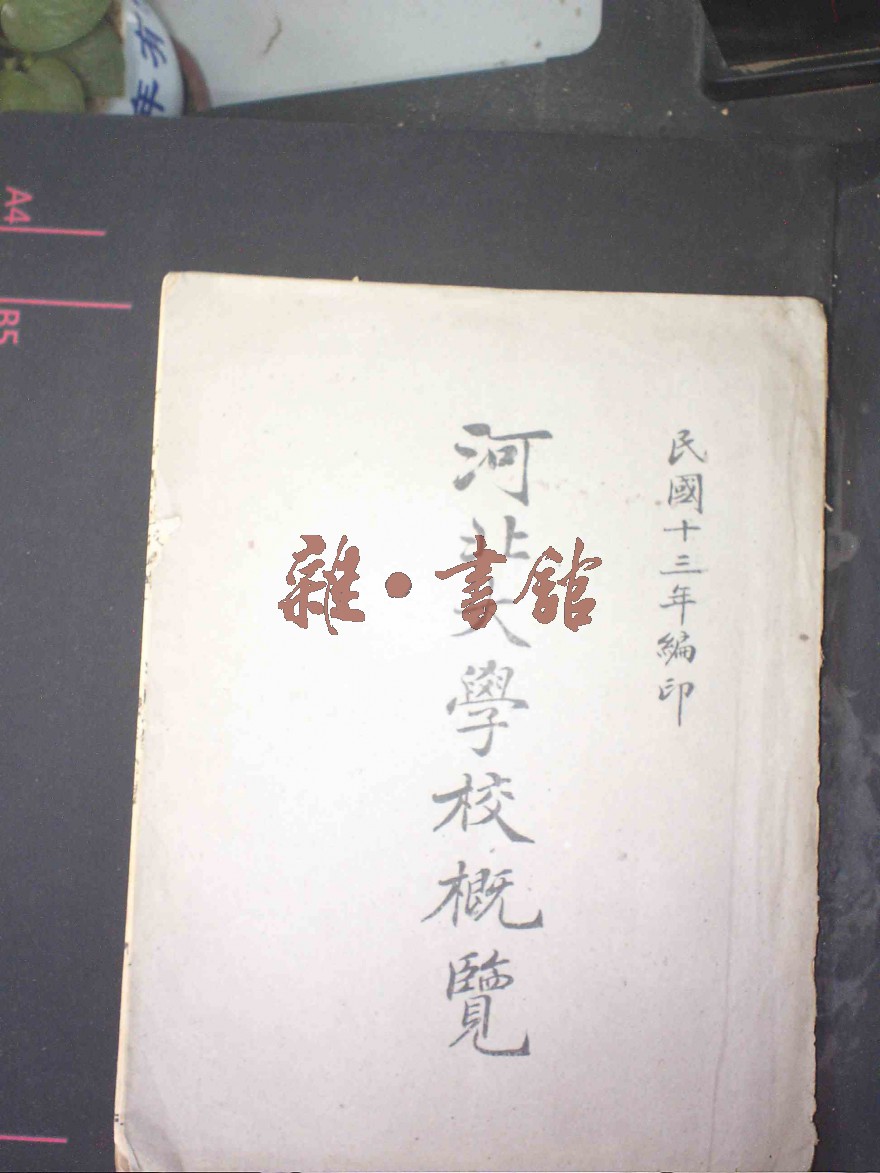 民國十三年編印
河北大學校概覽
雜·書館
A4
B5
年